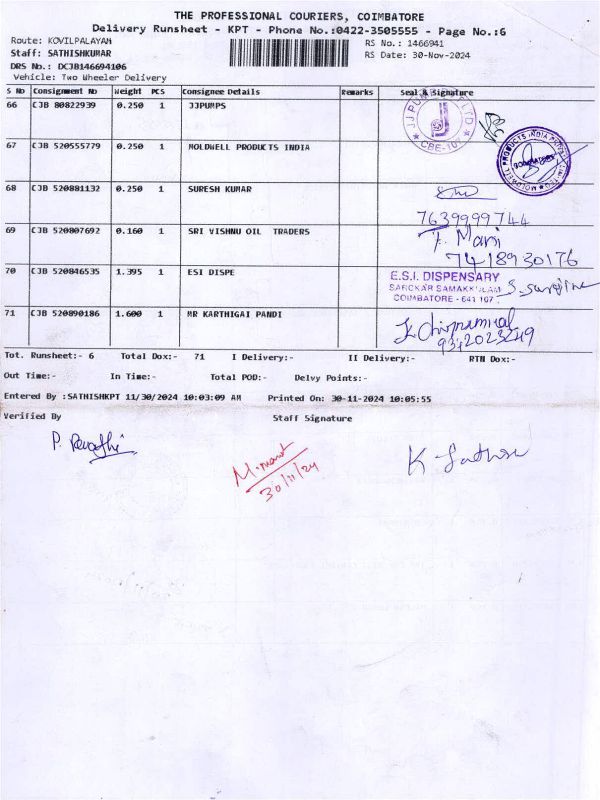 THE PROFESSIONAL COURIERS, COIMBATORE
Delivery Runsheet - KPT - Phone No.:0422-3505555 - Page No.:6
Route: KOVILPALAYAM
RS No.: 1466941
Staff: SATHISHKUMAR
RS Date: 30-Nov-2024
DRS No.: DCJB146694106
Vehicle: Two Wheeler Delivery
S No Consignment No Weight PCS Consignee Details Remarks Seal & Signature
66 CJB 80822939 0.250 1 JJPUMPS
CBE-107
67 CJB 520555779 0.250 1 MOLDWELL PRODUCTS INDIA
68 CJB 520881132 0.250 1 SURESH KUMAR
7639999744
69 CJB 520807692 0.160 1 SRI VISHNU OIL TRADERS
T. Mari
7418930176
70 CJB 520846535 1.395 1 ESI DISPE
E.S.I. DISPENSARY
SARCKAR SAMAKKULAM
COIMBATORE - 641 107
71 CJB 520890186 1.600 1 MR KARTHIGAI PANDI
9342023249
Tot. Runsheet:- 6 Total Dox:- 71 I Delivery:- II Delivery:- RTN Dox:-
Out Time:- In Time:- Total POD:- Delvy Points:-
Entered By :SATHISHKPT 11/30/2024 10:03:09 AM Printed On: 30-11-2024 10:05:55
Verified By Staff Signature
P. Revathi
30/11/24